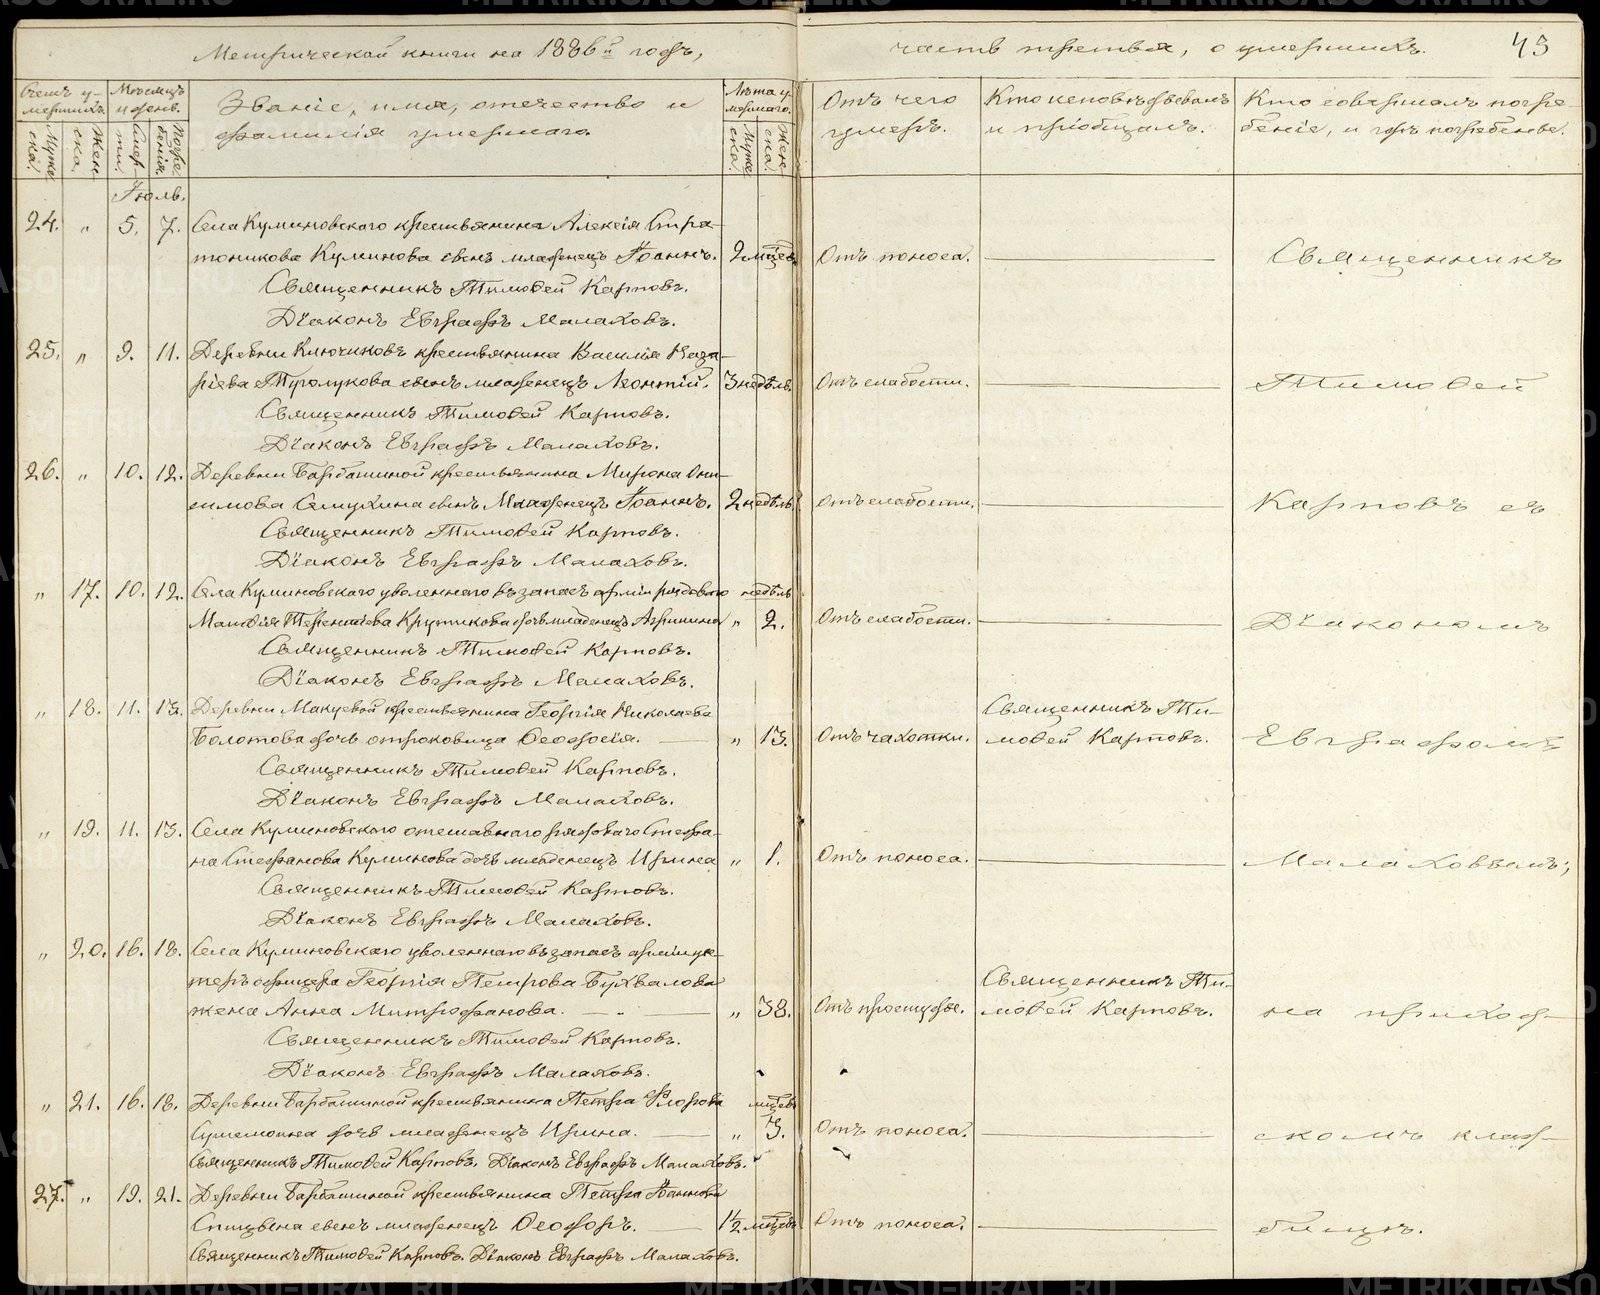 Метрической книги на 1886й годъ, часть третья, о умершихъ. 45
Счетъ умершихъ. Мѣсяцъ и день. Званіе, имя, отечество и фамилія умершаго. Лѣта умершаго. Отъ чего умеръ. Кто исповѣдывалъ и пріобщалъ. Кто совершалъ погребеніе, и гдѣ погребены.
Мужеска. Женска. Смерти. Погребенія. Мужеска. Женска.
Іюль.
24. „ 5. 7. Села Куминовскаго крестьянина Алексія Стра-
тоникова Куминова сынъ младенецъ Іоаннъ. 2 мѣсяц. Отъ поноса. Священникъ
Священникъ Тимоѳей Карповъ.
Діаконъ Евграфъ Малаховъ.
25. „ 9. 11. Деревни Ключиковъ крестьянина Василія Наза-
ріева Туголукова сынъ младенецъ Леонтій. 3 недѣль. Отъ слабости. Тимоѳей
Священникъ Тимоѳей Карповъ.
Діаконъ Евграфъ Малаховъ.
26. „ 10. 12. Деревни Барбашиной крестьянина Мирона Они-
симова сынъ Младенецъ Іоаннъ. 2 недѣль. Отъ слабости. Карповъ съ
Священникъ Тимоѳей Карповъ.
Діаконъ Евграфъ Малаховъ.
„ 17. 10. 12. Села Куминовскаго уволеннаго въ запасъ арміи рядового недѣль
Терентіева Крупикова дочь младенецъ Агрипина „ 2. Отъ слабости. Діакономъ
Священникъ Тимоѳей Карповъ.
Діаконъ Евграфъ Малаховъ.
„ 18. 11. 13. Деревни Макуевой крестьянина Георгія Николаева Священникъ Ти-
Болотова дочь отроковица Ѳеодосія. „ 13. Отъ чахотки. моѳей Карповъ. Евграфомъ
Священникъ Тимоѳей Карповъ.
Діаконъ Евграфъ Малаховъ.
„ 19. 11. 13. Села Куминовскаго отставнаго рядоваго Стефа-
на Стефанова Куминова дочь младенецъ Ирина „ 1. Отъ поноса. Малаховымъ;
Священникъ Тимоѳей Карповъ.
Діаконъ Евграфъ Малаховъ.
„ 20. 16. 18. Села Куминовскаго уволеннаго въ запасъ арміи ун-
теръ офицера Георгія Петрова Бухвалова Священникъ Ти-
жена Анна Митрофанова. „ 38. Отъ простуды. моѳей Карповъ. на приход-
Священникъ Тимоѳей Карповъ.
Діаконъ Евграфъ Малаховъ.
„ 21. 16. 18. Деревни Барбашиной крестьянина Петра Флорова
дочь младенецъ Ирина. „ 3. Отъ поноса. скомъ клад-
Священникъ Тимоѳей Карповъ. Діаконъ Евграфъ Малаховъ.
27. „ 19. 21. Деревни Барбашиной крестьянина Петра Іоаннова
Спицына сынъ младенецъ Ѳеодоръ. 1½ мѣсяц. Отъ поноса. бищѣ.
Священникъ Тимоѳей Карповъ. Діаконъ Евграфъ Малаховъ.